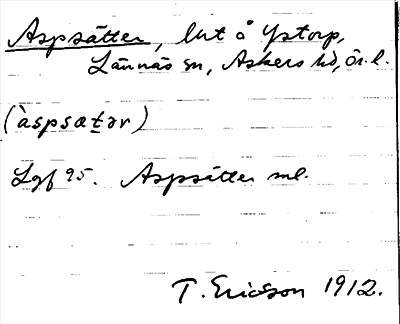 Aspsätter, lht å Ystorp,
Lännäs sn, Askers hd, Ör. l.
(àspsætər)
Lgf 95. Aspsätter ml.
T. Ericsson 1912.